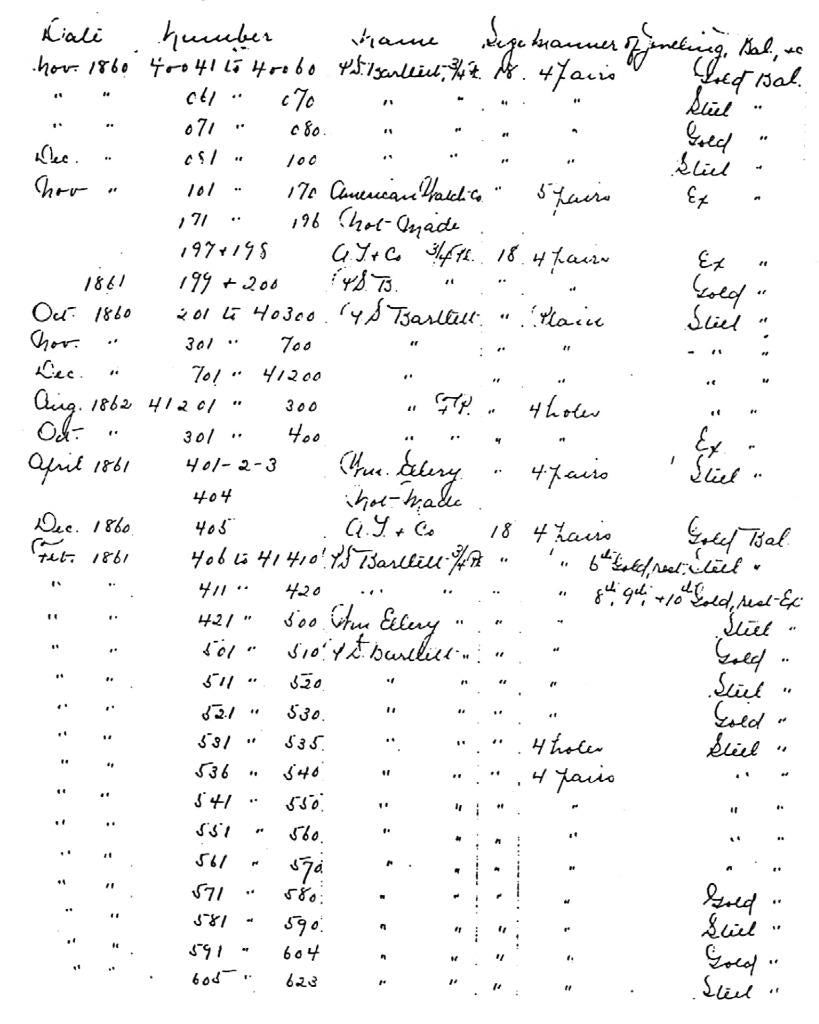 Date Number Name Size Manner of Jeweling, Bal, &c
Nov. 1860 40041 to 40060 P.S. Bartlett, 3/4 Pl. 18 4 Pairs Gold Bal.
" " 061 " 070 " " " " Steel "
" " 071 " 080 " " " " Gold "
Dec. " 081 " 100 " " " " Steel "
Nov " 101 " 170 American Watch Co " 5 pairs Ex "
171 " 196 Not Made
197 + 198 A.T. + Co 3/4 Pl. 18 4 pairs Ex "
1861 199 + 200 P.S.B. " " " Gold "
Oct. 1860 201 to 40300 P.S. Bartlett " Plain Steel "
Nov. " 301 " 700 " " " " "
Dec. " 701 " 41200 " " " " "
Aug. 1862 41201 " 300 " F.P. " 4 holes " "
Oct. " 301 " 400 " " " " Ex "
April 1861 401-2-3 Wm. Ellery " 4 pairs Steel "
404 Not Made
Dec. 1860 405 A.T. + Co 18 4 pairs Gold Bal.
Feb. 1861 406 to 41410 P.S. Bartlett 3/4 Pl " " 6th Gold, rest Steel "
" " 411 " 420 " " " 8th, 9th, + 10th Gold, rest Ex
" " 421 " 500 Wm Ellery " " " Steel "
" " 501 " 510 P.S. Bartlett " " " Gold "
" " 511 " 520 " " " " Steel "
" " 521 " 530 " " " " Gold "
" " 531 " 535 " " " 4 holes Steel "
" " 536 " 540 " " " 4 pairs " "
" " 541 " 550 " " " " " "
" " 551 " 560 " " " " " "
" " 561 " 570 " " " " " "
" " 571 " 580 " " " " Gold "
" " 581 " 590 " " " " Steel "
" " 591 " 604 " " " " Gold "
" " 605 " 623 " " " " Steel "